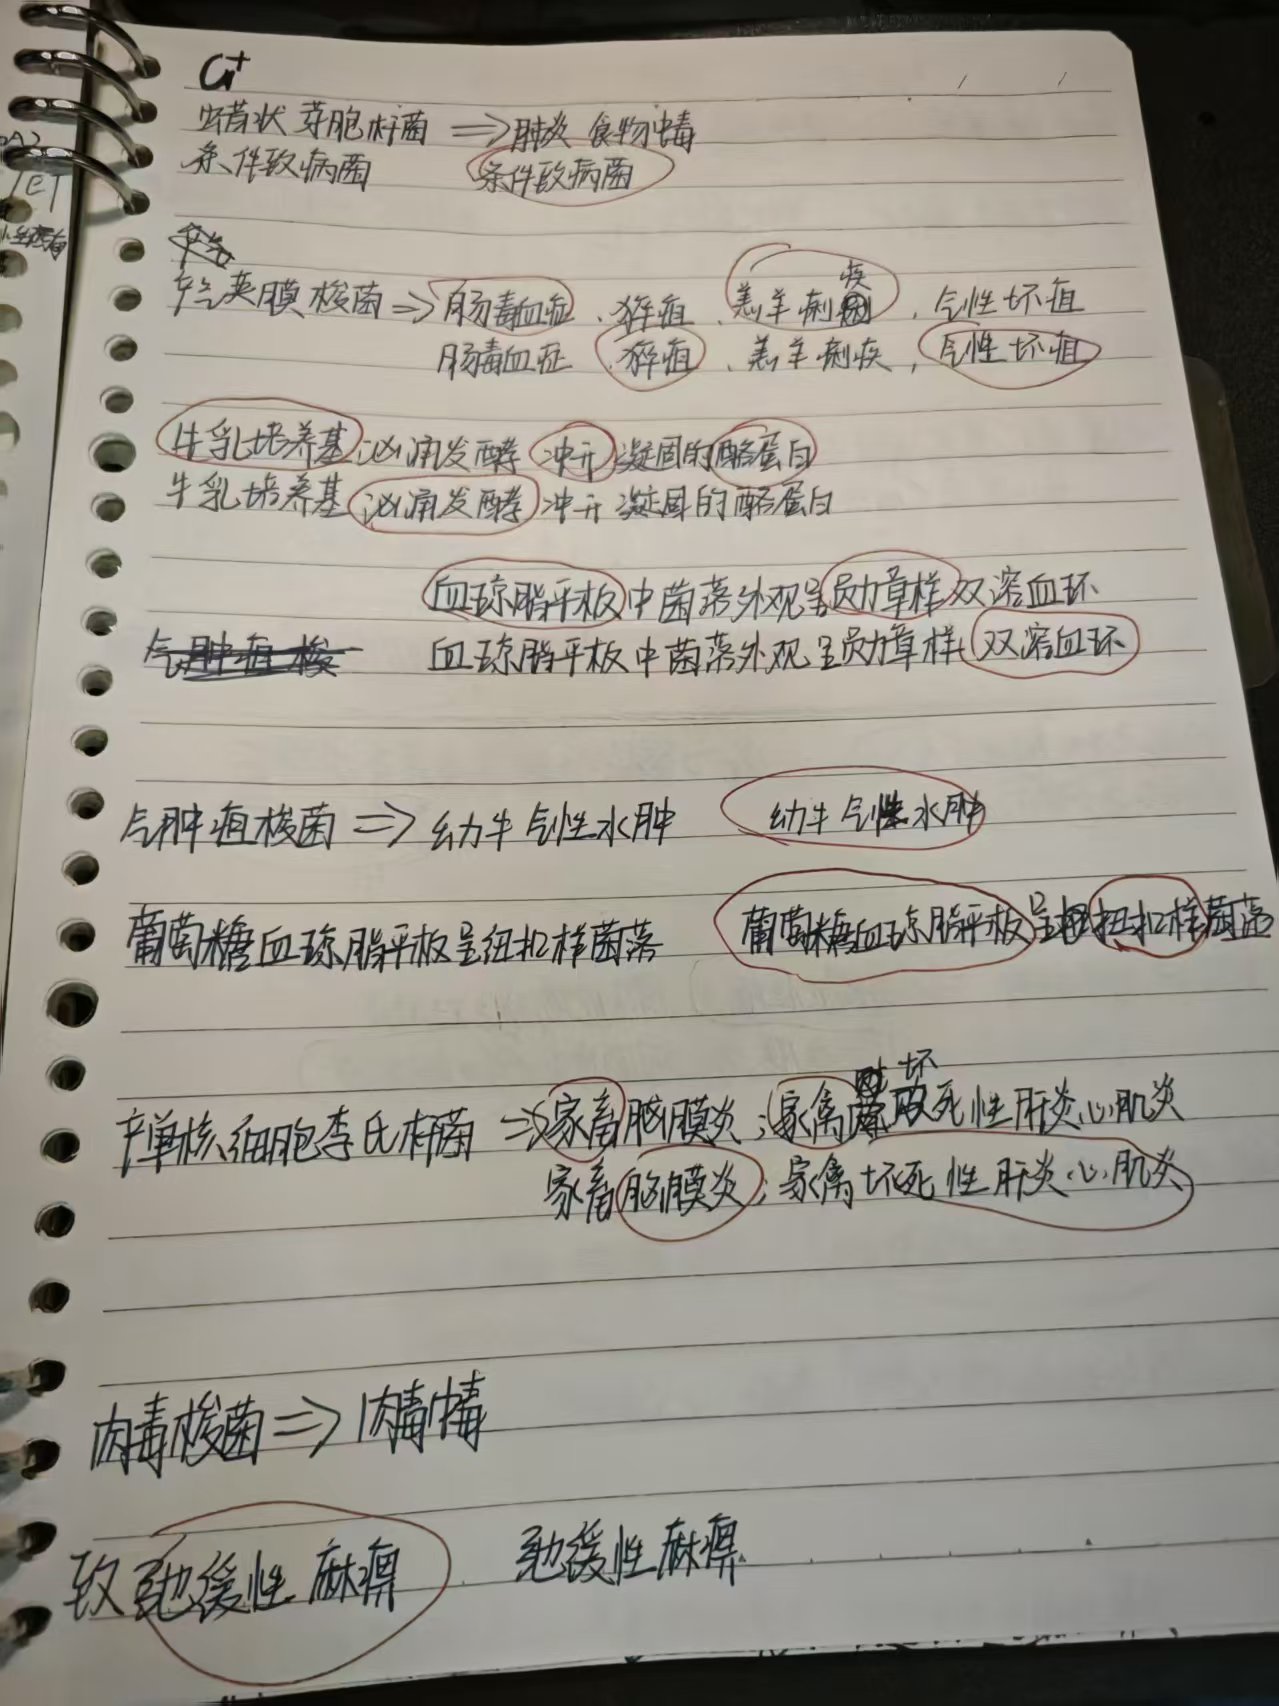 G+
蜡状芽胞杆菌 => 肺炎 食物中毒
条件致病菌 条件致病菌
产气荚膜梭菌 => 肠毒血症、猝疽、羔羊痢疾，气性坏疽
肠毒血症、猝疽、羔羊痢疾，气性坏疽
牛乳培养基汹涌发酵 冲开凝固的酪蛋白
牛乳培养基汹涌发酵 冲开凝固的酪蛋白
血琼脂平板中菌落外观呈勋章样双溶血环
气肿疽梭 血琼脂平板中菌落外观呈勋章样双溶血环
气肿疽梭菌 => 幼牛气性水肿 幼牛气性水肿
葡萄糖血琼脂平板呈纽扣样菌落 葡萄糖血琼脂平板呈扭扣样菌落
坏
产单核细胞李氏杆菌 => 家畜脑膜炎；家禽死性肝炎心肌炎
家畜脑膜炎；家禽坏死性肝炎心肌炎
肉毒梭菌 => 肉毒中毒
致弛缓性麻痹 弛缓性麻痹